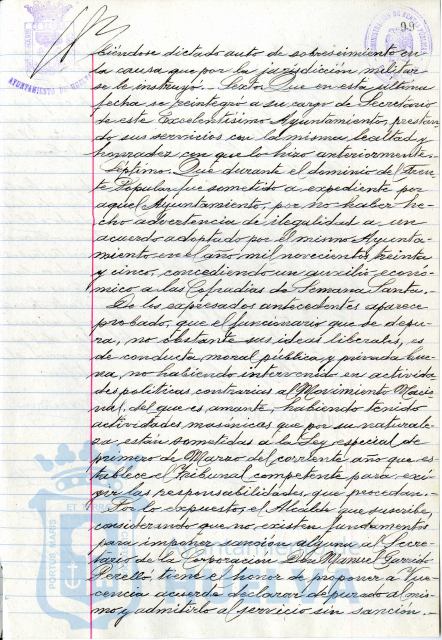 99
AYUNTAMIENTO DE
biéndose dictado auto de sobreseimiento en
la causa que por la jurisdicción militar
se le instruyo.- Sexto. Que en esta última
fecha se reintegró a su cargo de Secretario
de este Excelentísimo Ayuntamiento, prestan
do sus servicios con la misma lealtad y
honradez con que lo hizo anteriormente.-
Septimo. Que durante el dominio del Fren
te Popular fue sometido a expediente por
aquel Ayuntamiento, por no haber he-
cho advertencia de ilegalidad a un
acuerdo adoptado por el mismo Ayunta-
miento en el año mil novecientos treinta
y cinco, concediendo un auxilio econó-
mico a las Cofradías de Semana Santa.-
De los expresados antecedentes aparece
probado, que el funcionario que se depu-
ra, no obstante sus ideas liberales, es
de conducta moral pública y privada bue-
na, no habiendo intervenido en activida-
des políticas contrarias al Movimiento Nacio
nal, del que es amante, habiendo tenido
actividades masónicas que por su naturale-
za están sometidas a la Ley especial de
primero de Marzo del corriente año que es-
tablece el Tribunal competente para exi-
gir las responsabilidades que procedan.-
Por lo expuesto, el Alcalde que suscribe,
considerando que no existen fundamentos
para imponer sanción alguna al Secre-
tario de la Corporación Don Manuel Garrido
Perelló, tiene el honor de proponer a Vue-
cencia acuerde declarar depurado al mis-
mo y admitirlo al servicio sin sanción.-
PORTUS MARIS ET TERRAE
Ayuntamiento de